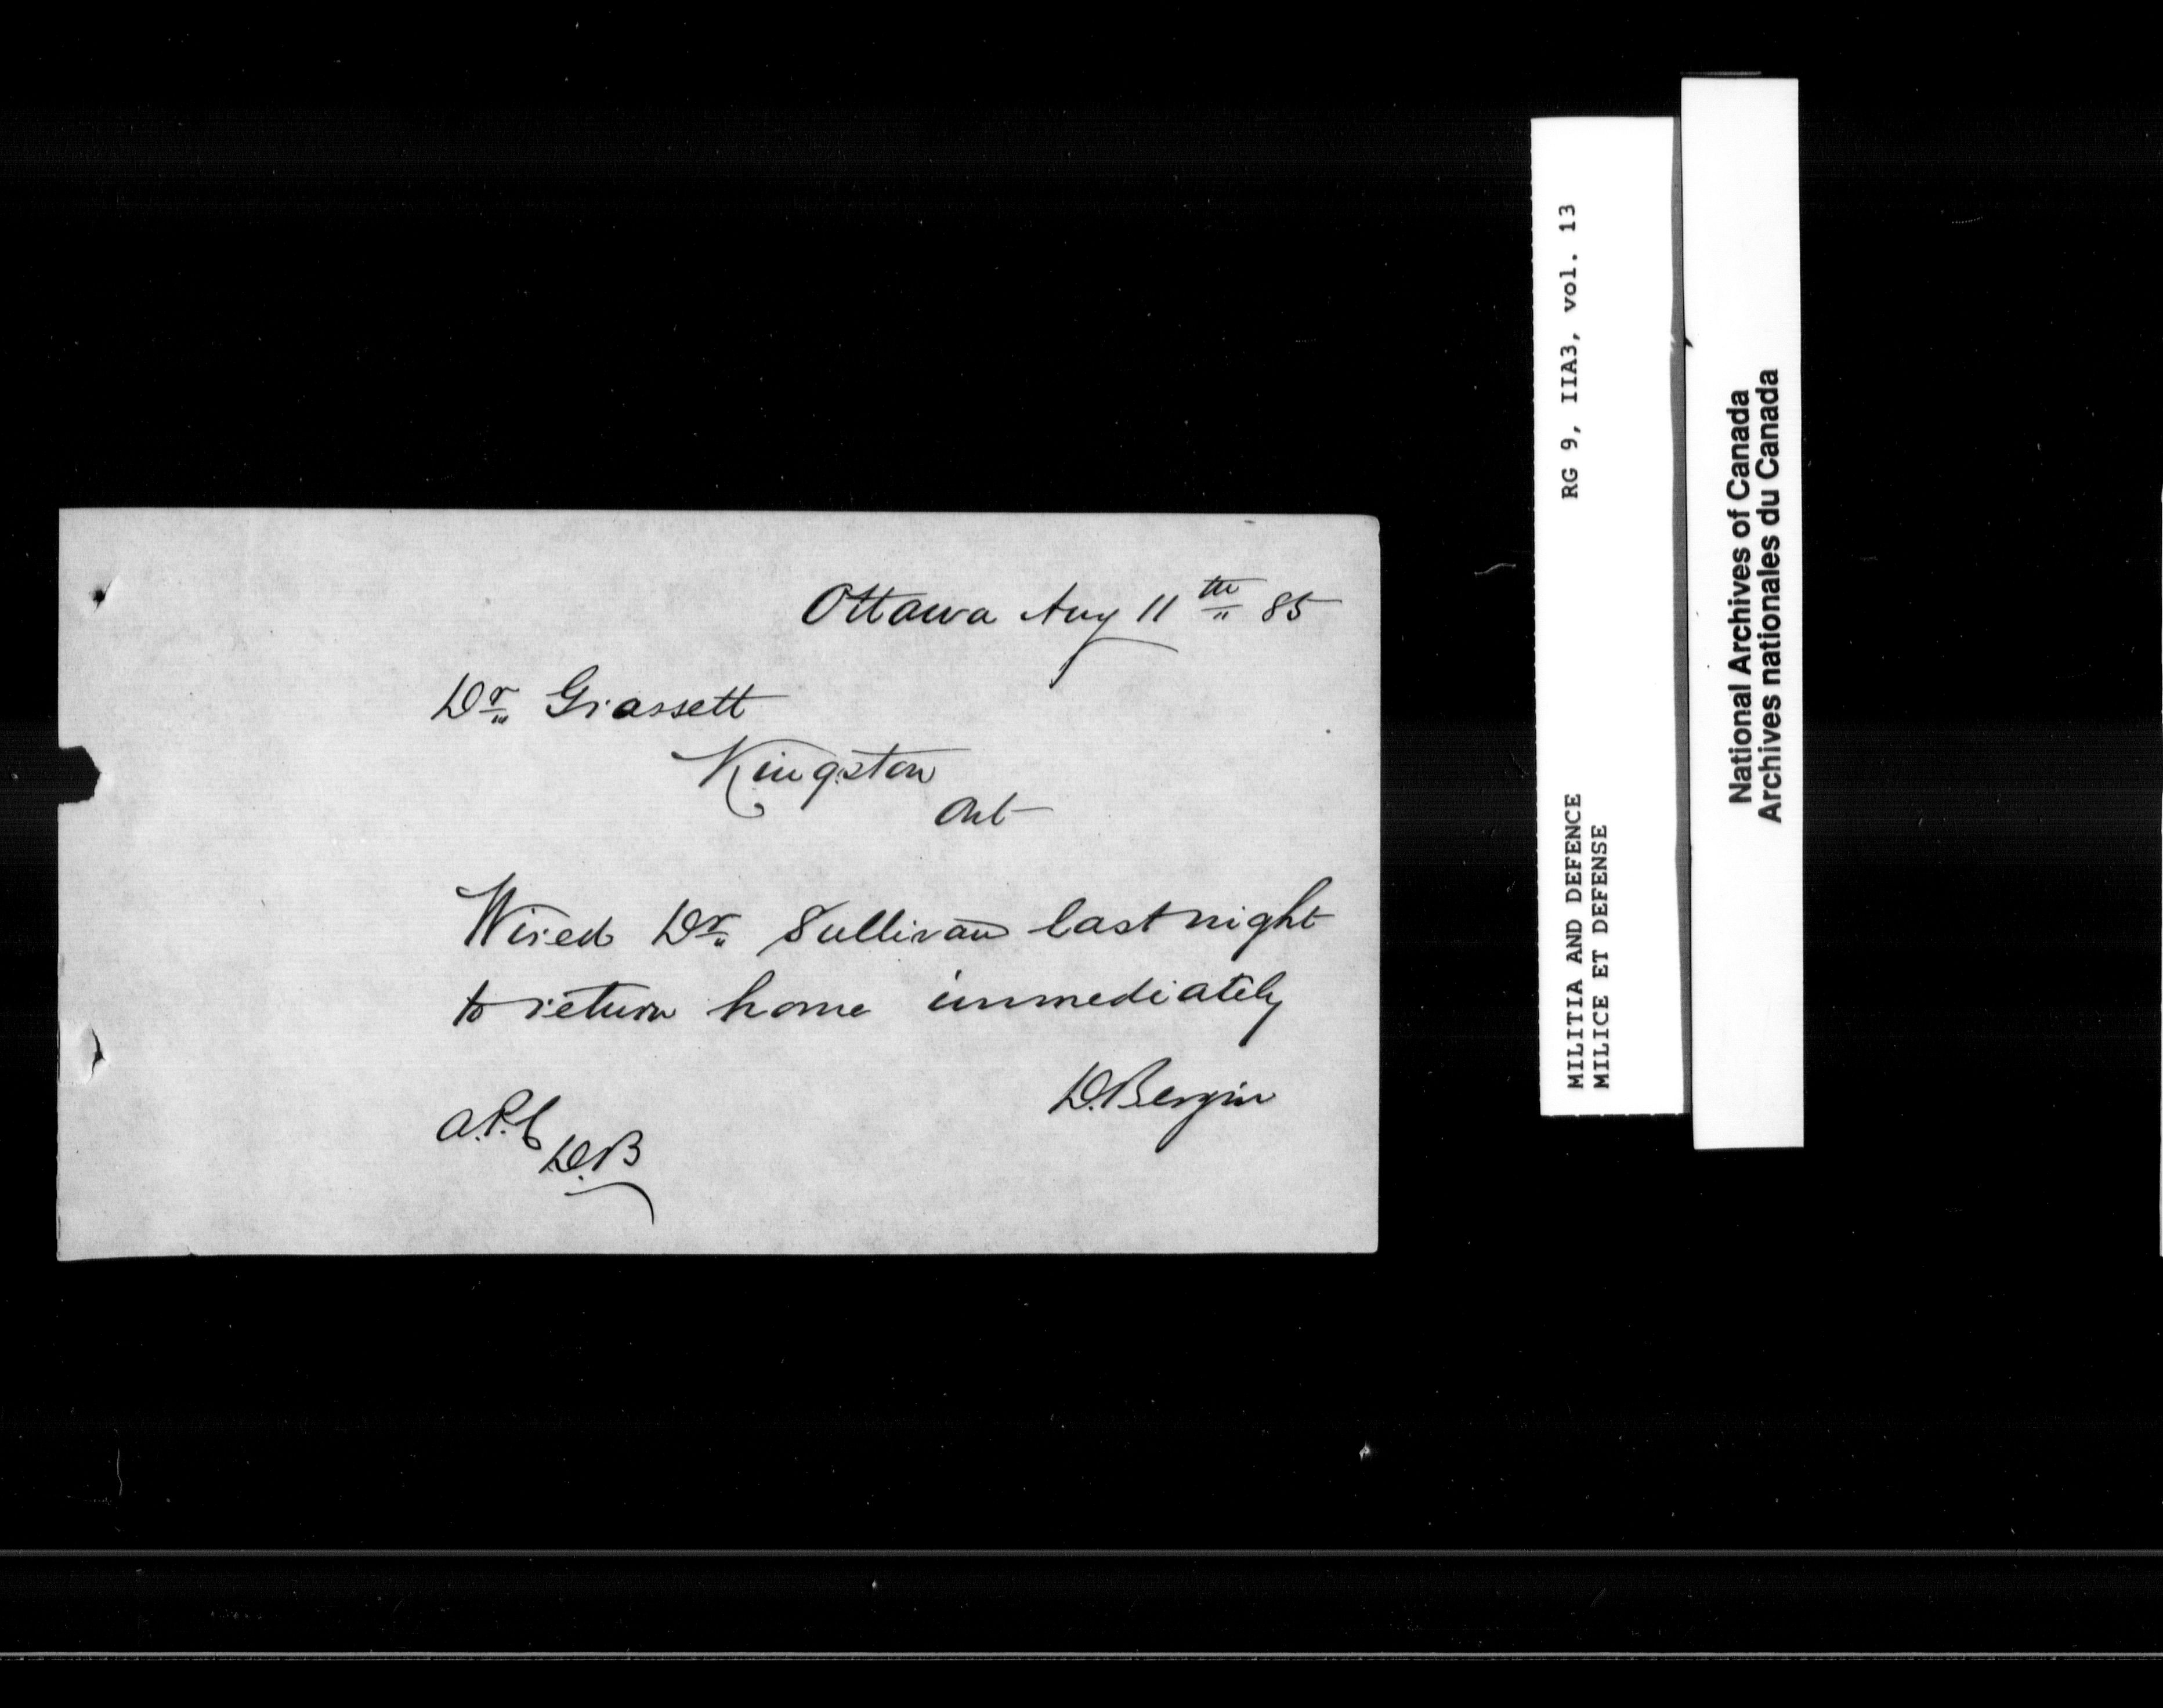 Ottawa Aug 11th 85
Dr. Grassett
Kingston
Ont
Wired Dr. Sullivan last night
to return home immediately
D. Bergin
D.B
RG 9, IIA3, vol. 13
MILITIA AND DEFENCE
MILICE ET DEFENSE
National Archives of Canada
Archives nationales du Canada